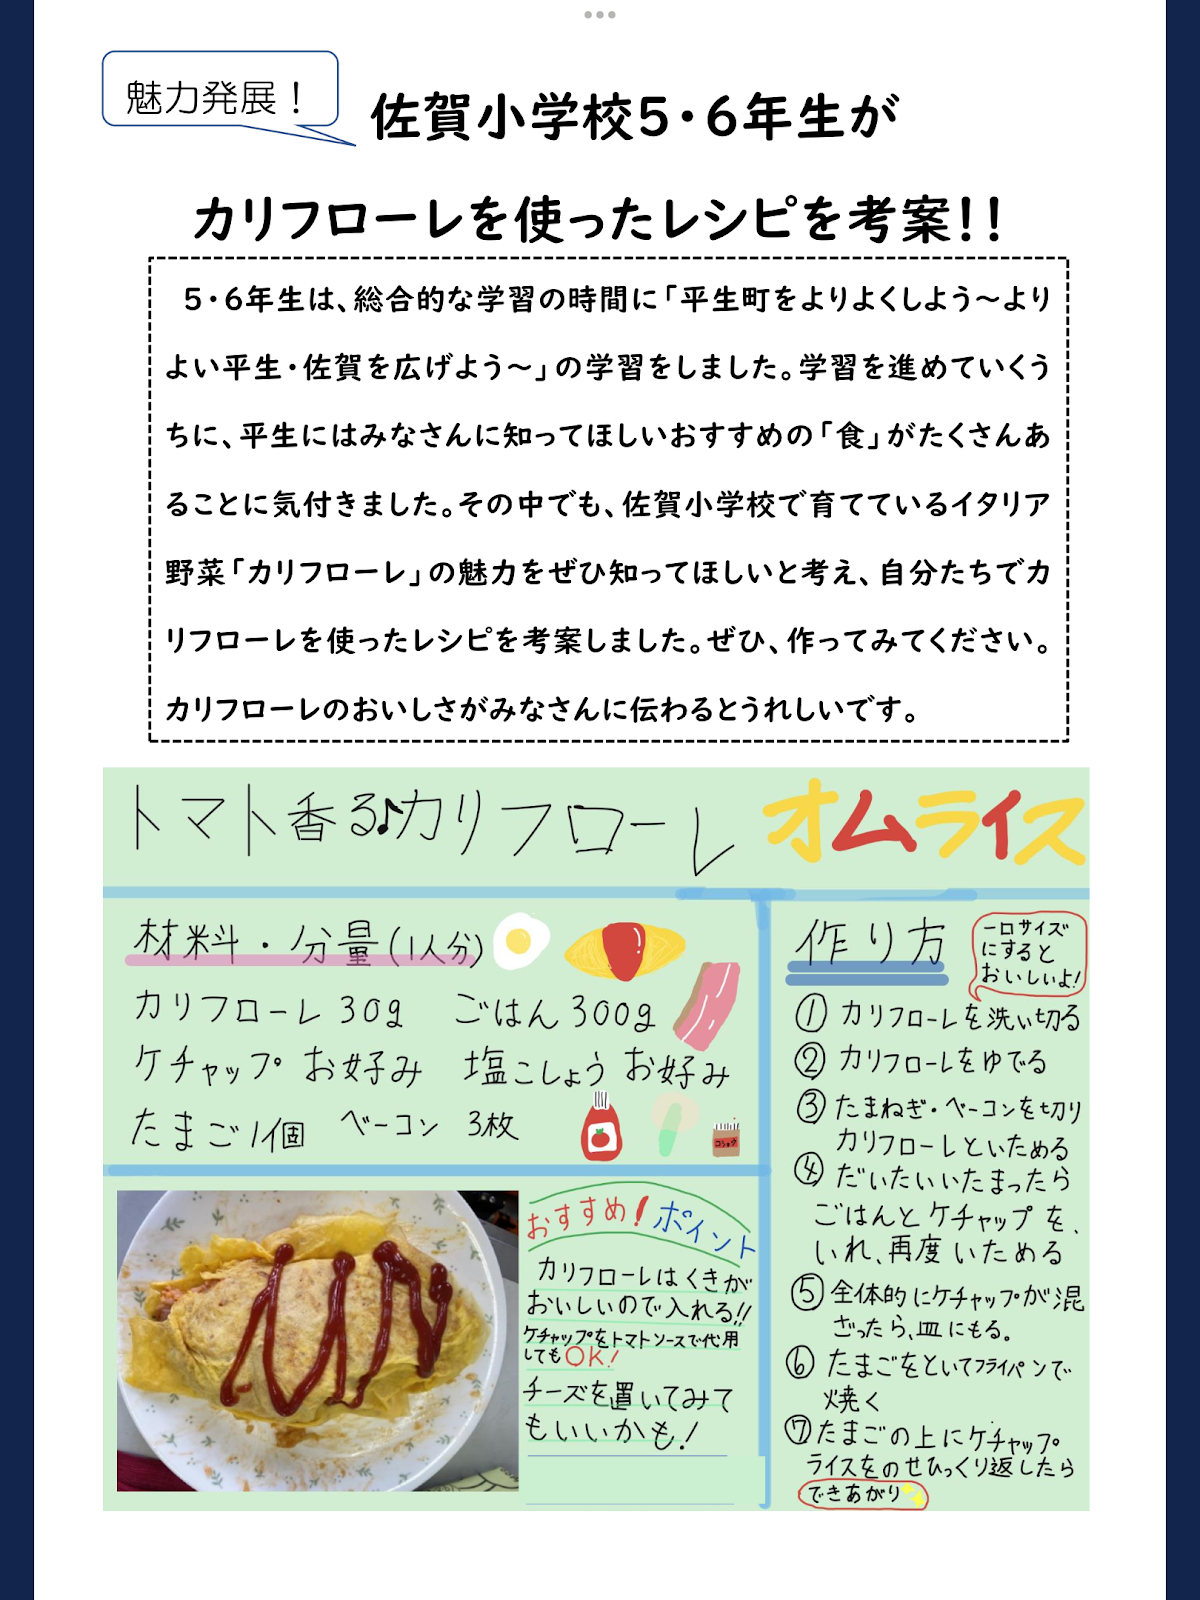 魅力発展！
佐賀小学校5・6年生が
カリフローレを使ったレシピを考案！！
5・6年生は、総合的な学習の時間に「平生町をよりよくしよう～より
よい平生・佐賀を広げよう～」の学習をしました。学習を進めていくう
ちに、平生にはみなさんに知ってほしいおすすめの「食」がたくさんあ
ることに気付きました。その中でも、佐賀小学校で育てているイタリア
野菜「カリフローレ」の魅力をぜひ知ってほしいと考え、自分たちでカ
リフローレを使ったレシピを考案しました。ぜひ、作ってみてください。
カリフローレのおいしさがみなさんに伝わるとうれしいです。
トマト香る♪カリフローレ オムライス
材料・分量(1人分)
カリフローレ 30g ごはん 300g
ケチャップ お好み 塩こしょう お好み
たまご1個 ベーコン 3枚
コショウ
おすすめ!ポイント
カリフローレはくきが
おいしいので入れる!!
ケチャップをトマトソースで代用
してもOK!
チーズを置いてみて
もいいかも!
作り方
一口サイズ
にすると
おいしいよ!
① カリフローレを洗い切る
② カリフローレをゆでる
③ たまねぎ・ベーコンを切り
カリフローレといためる
④ だいたいいたまったら
ごはんとケチャップを、
いれ、再度いためる
⑤ 全体的にケチャップが混
ざったら、皿にもる。
⑥ たまごをといてフライパンで
焼く
⑦ たまごの上にケチャップ
ライスをのせひっくり返したら
できあがり